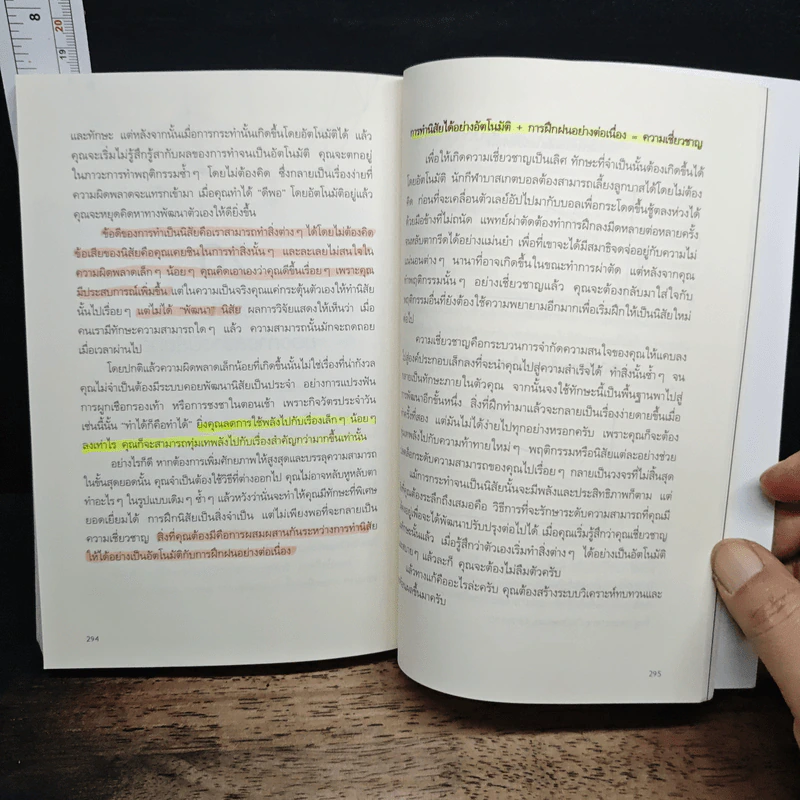 8
19
20
และทักษะ แต่หลังจากนั้นเมื่อการกระทำนั้นเกิดขึ้นโดยอัตโนมัติได้ แล้ว
คุณจะเริ่มไม่รู้สึกรู้สากับผลของการทำจนเป็นอัตโนมัติ คุณจะตกอยู่
ในภาวะการทำพฤติกรรมซ้ำๆ โดยไม่ต้องคิด ซึ่งกลายเป็นเรื่องง่ายที่
ความผิดพลาดจะแทรกเข้ามา เมื่อคุณทำได้ "ดีพอ" โดยอัตโนมัติอยู่แล้ว
คุณจะหยุดคิดหาทางพัฒนาตัวเองให้ดียิ่งขึ้น
ข้อดีของการทำเป็นนิสัยคือเราสามารถทำสิ่งต่างๆ ได้โดยไม่ต้องคิด
ข้อเสียของนิสัยคือคุณเคยชินในการทำสิ่งนั้นๆ และละเลยไม่สนใจใน
ความผิดพลาดเล็กๆ น้อยๆ คุณคิดเอาเองว่าคุณดีขึ้นเรื่อยๆ เพราะคุณ
มีประสบการณ์เพิ่มขึ้น แต่ในความเป็นจริงคุณแค่กระตุ้นตัวเองให้ทำนิสัย
นั้นไปเรื่อยๆ แต่ไม่ได้ "พัฒนา" นิสัย ผลการวิจัยแสดงให้เห็นว่า เมื่อ
คนเรามีทักษะความสามารถใดๆ แล้ว ความสามารถนั้นมักจะถดถอย
เมื่อเวลาผ่านไป
โดยปกติแล้วความผิดพลาดเล็กน้อยที่เกิดขึ้นนั้นไม่ใช่เรื่องที่น่ากังวล
คุณไม่จำเป็นต้องมีระบบคอยพัฒนานิสัยเป็นประจำ อย่างการแปรงฟัน
การผูกเชือกรองเท้า หรือการชงชาในตอนเช้า เพราะกิจวัตรประจำวัน
เช่นนี้นั้น "ทำได้ก็คือทำได้" ยิ่งคุณลดการใช้พลังไปกับเรื่องเล็กๆ น้อยๆ
ลงเท่าไร คุณก็จะสามารถทุ่มเทพลังไปกับเรื่องสำคัญกว่ามากขึ้นเท่านั้น
อย่างไรก็ดี หากต้องการเพิ่มศักยภาพให้สูงสุดและบรรลุความสามารถ
ในขั้นสุดยอดนั้น คุณจำเป็นต้องใช้วิธีที่ต่างออกไป คุณไม่อาจหลับหูหลับตา
ทำอะไรๆ ในรูปแบบเดิมๆ ซ้ำๆ แล้วหวังว่านั่นจะทำให้คุณมีทักษะที่พิเศษ
ยอดเยี่ยมได้ การฝึกนิสัยเป็นสิ่งจำเป็น แต่ไม่เพียงพอที่จะกลายเป็น
ความเชี่ยวชาญ สิ่งที่คุณต้องมีคือการผสมผสานกันระหว่างการทำนิสัย
ให้ได้อย่างเป็นอัตโนมัติกับการฝึกฝนอย่างต่อเนื่อง
294
การทำนิสัยได้อย่างอัตโนมัติ + การฝึกฝนอย่างต่อเนื่อง = ความเชี่ยวชาญ
เพื่อให้เกิดความเชี่ยวชาญเป็นเลิศ ทักษะที่จำเป็นนั้นต้องเกิดขึ้นได้
โดยอัตโนมัติ นักกีฬาบาสเกตบอลต้องสามารถเลี้ยงลูกบาสได้โดยไม่ต้อง
คิด ก่อนที่จะเคลื่อนตัวเลย์อัปไปมากับบอลเพื่อกระโดดขึ้นชู้ตลงห่วงได้
ด้วยมือข้างที่ไม่ถนัด แพทย์ผ่าตัดต้องทำการฝึกลงมีดหลายต่อหลายครั้ง
หลับตากรีดได้อย่างแม่นยำ เพื่อที่เขาจะได้มีสมาธิจดจ่ออยู่กับความไม่
แน่นอนต่างๆ นานาที่อาจเกิดขึ้นในขณะทำการผ่าตัด แต่หลังจากคุณ
ทำพฤติกรรมนั้นๆ อย่างเชี่ยวชาญแล้ว คุณจะต้องกลับมาใส่ใจกับ
พฤติกรรมอื่นที่ยังต้องใช้ความพยายามอีกมากเพื่อเริ่มฝึกให้เป็นนิสัยใหม่
ต่อไป
ความเชี่ยวชาญคือกระบวนการจำกัดความสนใจของคุณให้แคบลง
องค์ประกอบเล็กลงที่จะนำคุณไปสู่ความสำเร็จได้ ทำสิ่งนั้นซ้ำๆ จน
กลายเป็นทักษะภายในตัวคุณ จากนั้นจงใช้ทักษะนี้เป็นพื้นฐานพาไปสู่
การพัฒนาอีกขั้นหนึ่ง สิ่งที่ฝึกทำมาแล้วจะกลายเป็นเรื่องง่ายดายขึ้นเมื่อ
ครั้งที่สอง แต่มันไม่ได้ง่ายไปทุกอย่างหรอกครับ เพราะคุณก็จะต้อง
พลังไปกับความท้าทายใหม่ๆ พฤติกรรมหรือนิสัยแต่ละอย่างช่วย
ระดับความสามารถของคุณไปเรื่อยๆ กลายเป็นวงจรที่ไม่สิ้นสุด
แม้การกระทำจนเป็นนิสัยนั้นจะมีพลังและประสิทธิภาพก็ตาม แต่
ต้องระลึกถึงเสมอคือ วิธีการที่จะรักษาระดับความสามารถที่คุณมี
อยู่เพื่อจะได้พัฒนาปรับปรุงต่อไปได้ เมื่อคุณเริ่มรู้สึกว่าคุณเชี่ยวชาญ
นั้นแล้ว เมื่อรู้สึกว่าตัวเองเริ่มทำสิ่งต่างๆ ได้อย่างเป็นอัตโนมัติ
สบายๆ แล้วละก็ คุณจะต้องไม่ลืมตัวครับ
แล้วทางแก้คืออะไรล่ะครับ คุณต้องสร้างระบบวิเคราะห์ทบทวนและ
ขึ้นมาครับ
295